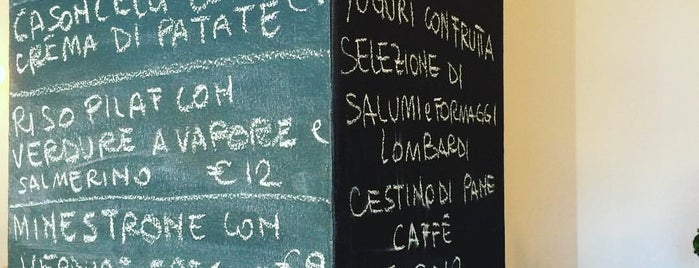 CREMA DI PATATE
RISO PILAF CON
VERDURE A VAPORE e
SALMERINO €12
MINESTRONE CON
YOGURT CON FRUTTA
SELEZIONE DI
SALUMI e FORMAGGI
LOMBARDI
CESTINO DI PANE
CAFFÈ